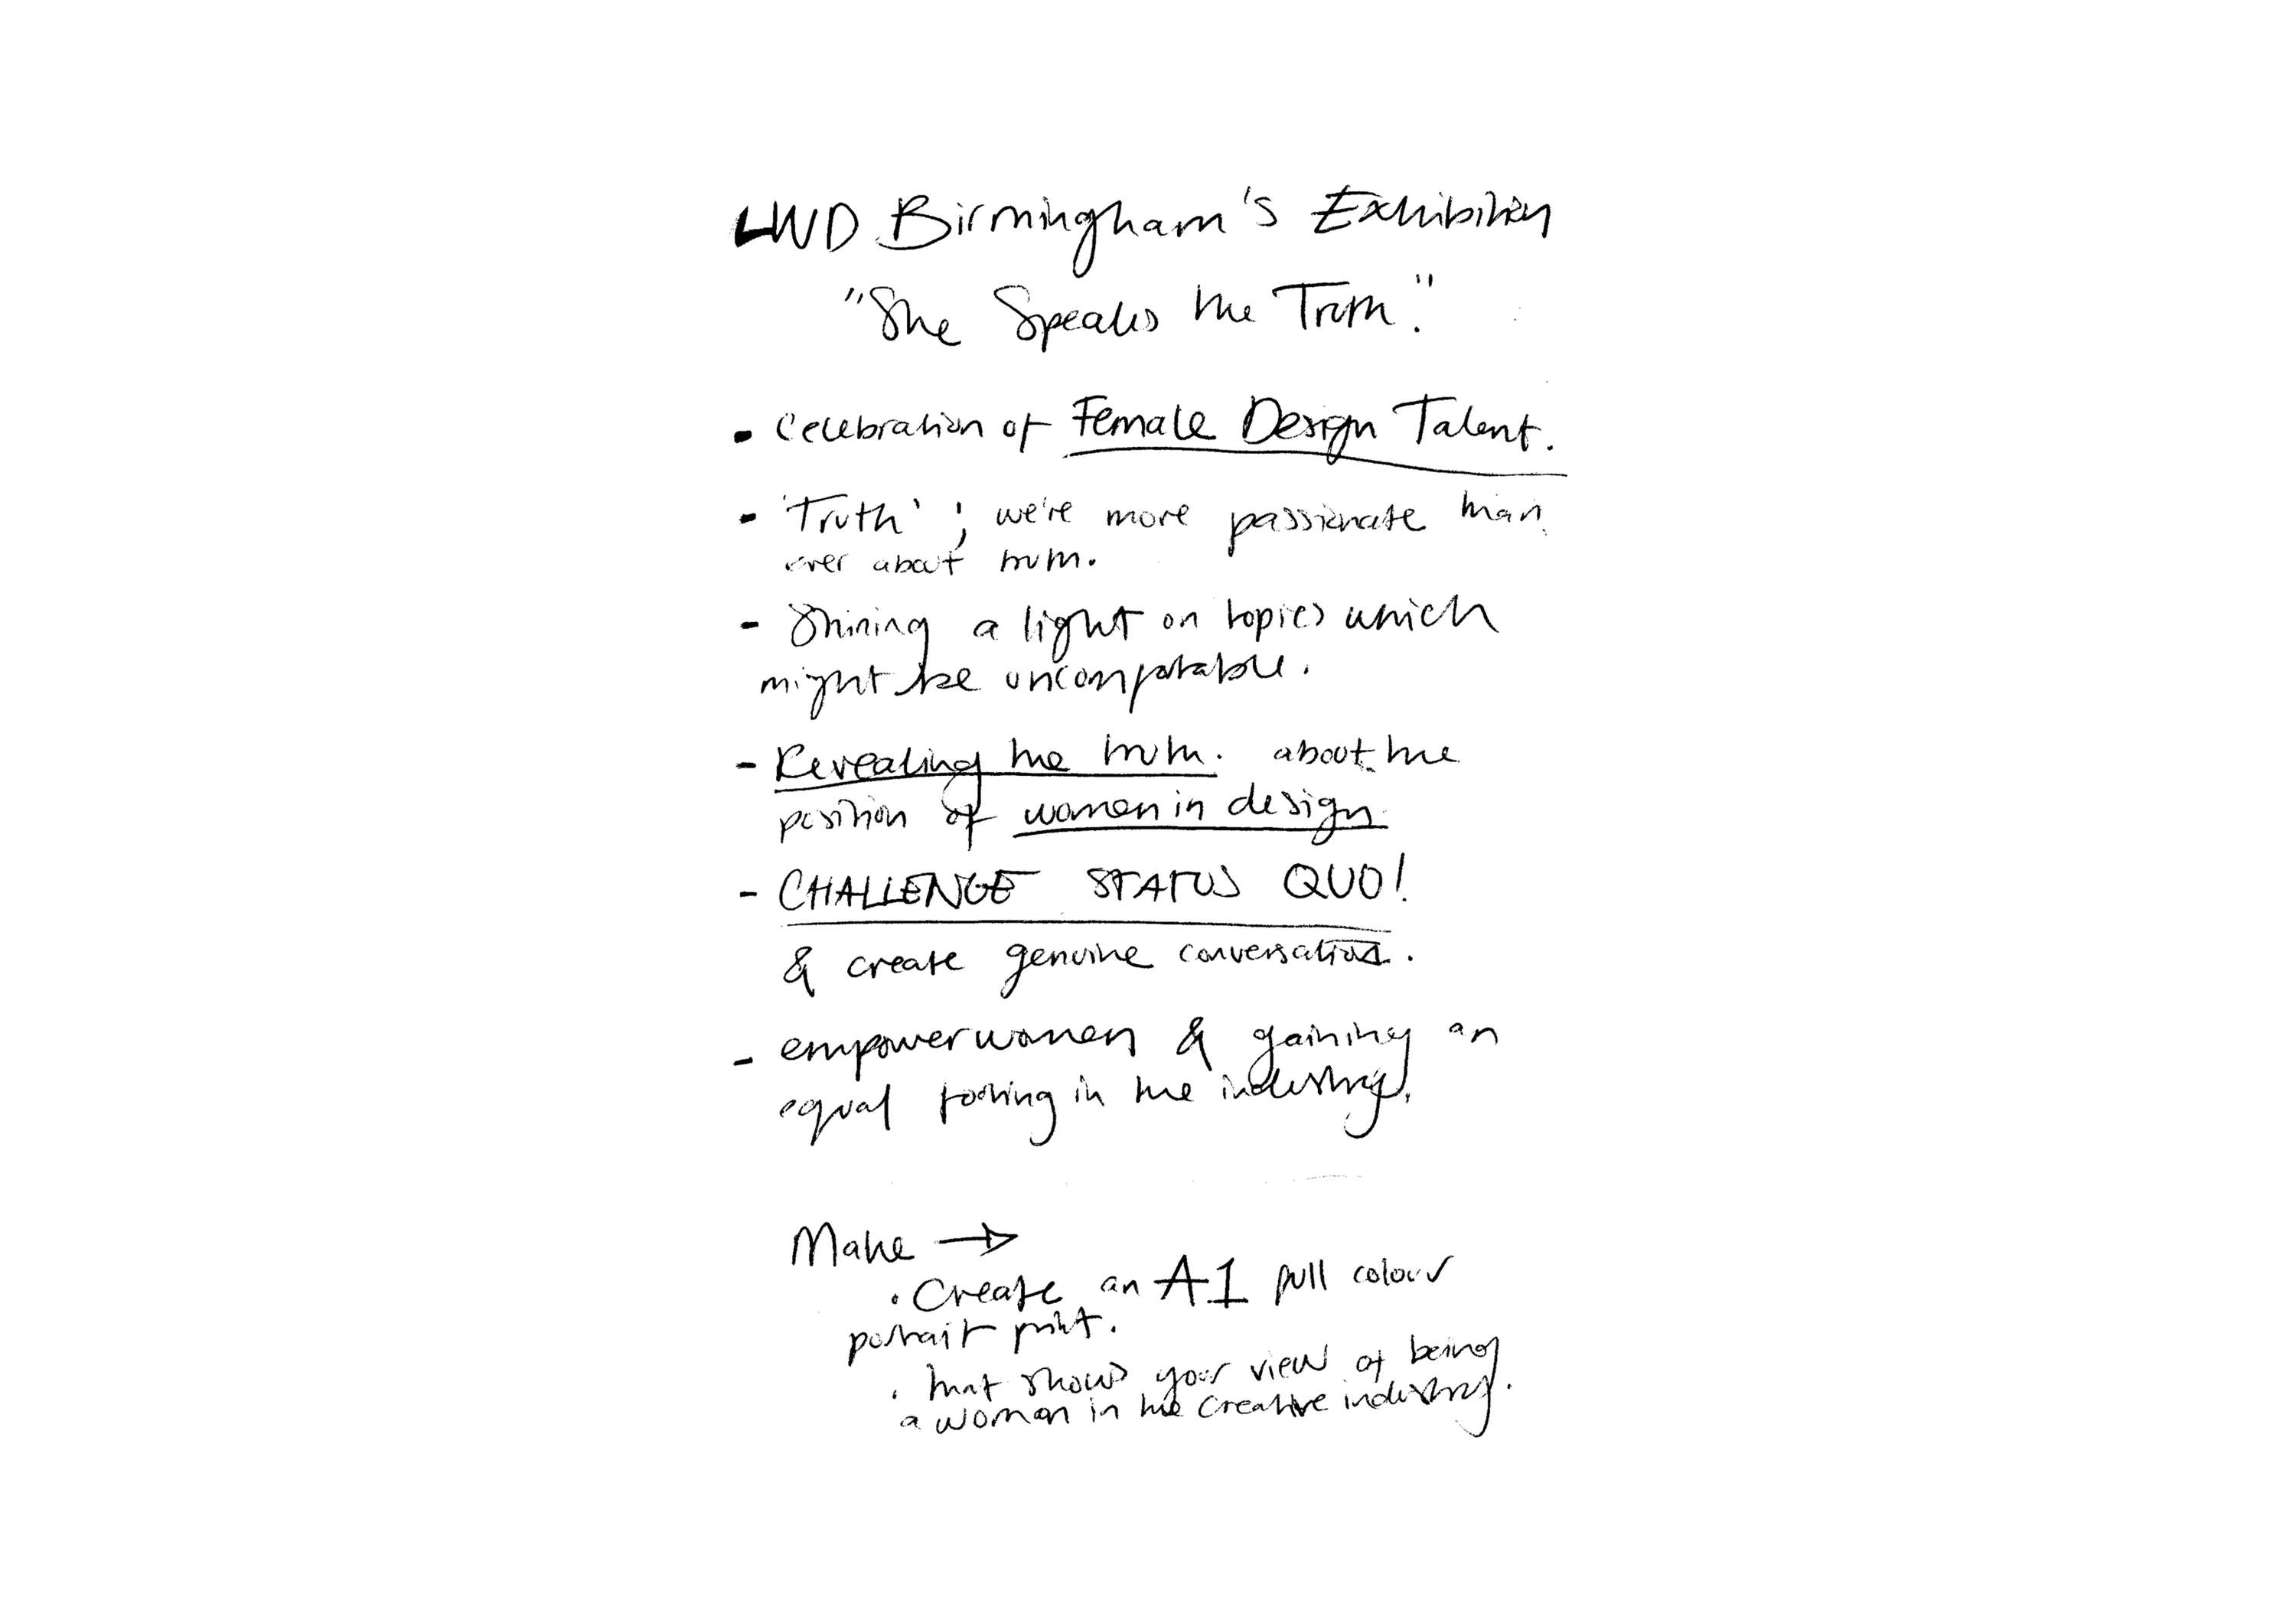 LWD Birmingham's Exhibition
"She Speaks the Truth."
- Celebration of Female Design Talent.
- 'Truth'; we're more passionate than
ever about truth.
- Shining a light on topics which
might be uncomfortable.
- Revealing the truth. about the
position of women in design
- CHALLENGE STATUS QUO!
& create genuine conversation.
- empower women & gaining an
equal footing in the industry.
Make →
• Create an A1 full colour
portrait print.
• that shows your view of being
a woman in the creative industry.